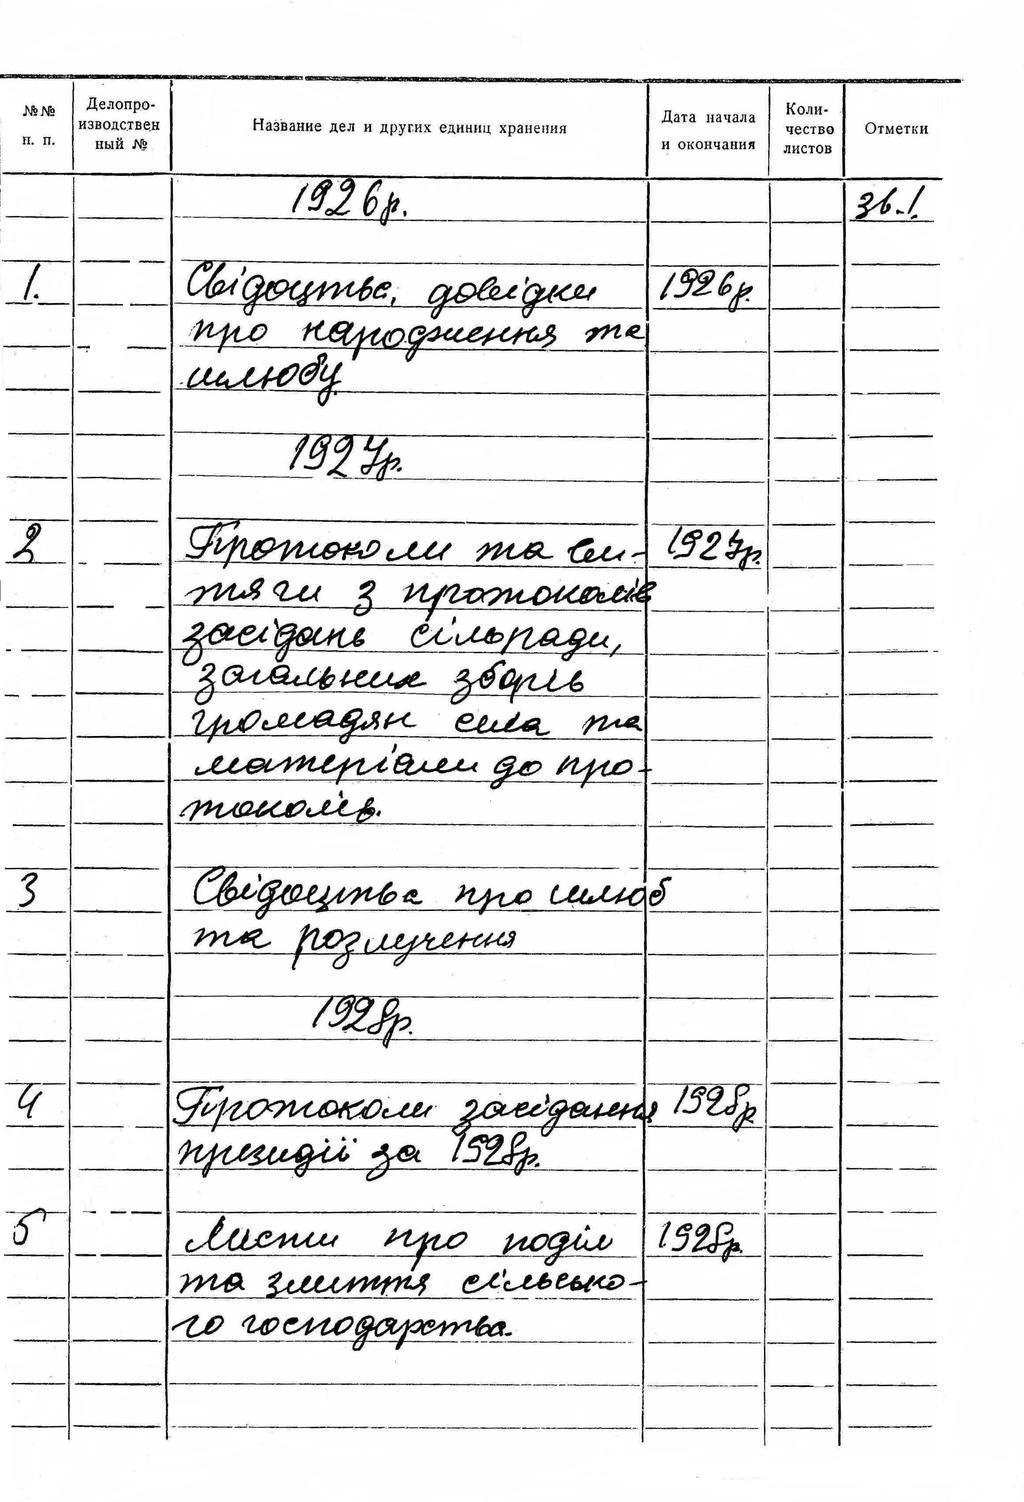 №№ н. п.
Делопро-
изводствен
ный №
Название дел и других единиц хранения
Дата начала
и окончания
Коли-
чество
листов
Отметки
1926р.
Зв.1.
1. Свідоцтва, довідки 1926р.
про народження та
шлюбу
1927р.
2 Протоколи та ви- 1927р.
тяги з протоколів
засідань сільради,
загальних зборів
громадян села та
матеріали до про-
токолів.
3 Свідоцтва про шлюб
та розлучення
1928р.
4 Протоколи засідання 1928р
президії за 1928р.
5 Листи про поділ 1928р.
та злиття сільсько-
го господарства.